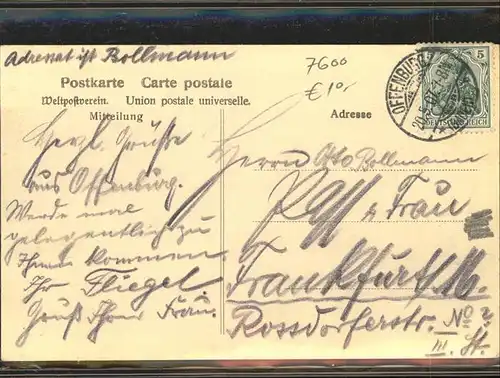 Adressat ist Bollmann
7600
€ 10,-
Postkarte Carte postale
Weltpostverein. Union postale universelle.
Mitteilung
Adresse
OFFENBURG
5
DEUTSCHES REICH
Herzl. Grüße
aus Offenburg.
Werde mal
gelegentlich zu
Ihnen kommen.
Ihr Fliegel.
Gruß Ihrer Frau.
Herrn Otto Bollmann
& Frau
Frankfurt/M.
Rossdorferstr. No 2
III. St.